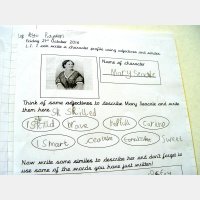 Friday 21st October 2016
L.I. I can write a character profile using adjectives and similes.
Name of character
Mary Seacole
Think of some adjectives to describe Mary Seacole and write
them here. Skilled
Skilled brave helpful Caring
Smart sweet
Now write some similes to describe her and don't forget to
use some of the words you have just written!